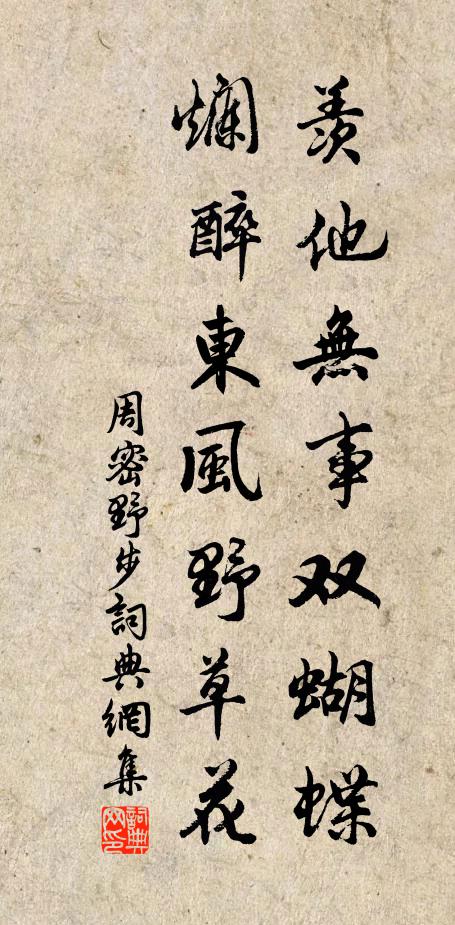 羨他無事双蝴蝶
爛醉東風野草花
周密野步詞典網集
詞典網印